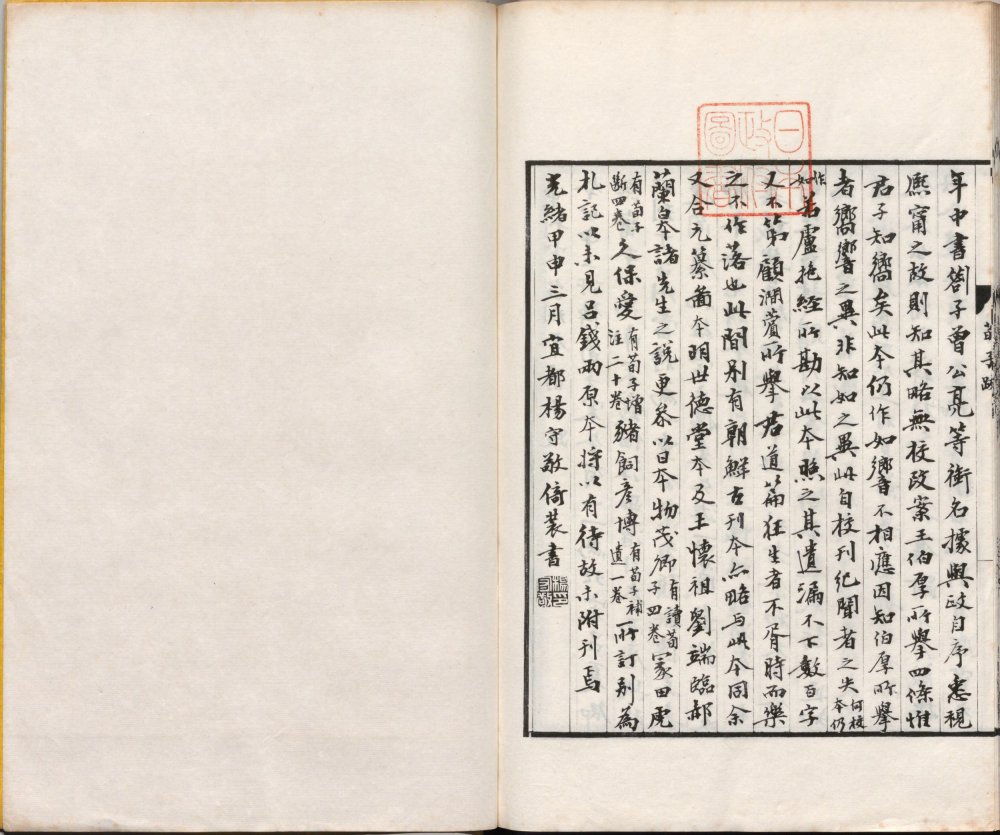 年中書劄子曾公亮等銜名據與政自序悉視
熙甯之故則知其略無校改案王伯厚所舉四條惟
君子知嚮矣此本仍作如響不相應因知伯厚所舉
者嚮響之異非知如之異此自校刊紀聞者之失何校本仍
作如若盧抱經所勘以此本照之其遺漏不下數百字
又不第顧澗薲所舉君道篇狂生者不胥時而樂
之不作落也此間別有朝鮮古刊本亦略與此本同余
又合元纂圖本明世德堂本及王懷祖劉端臨郝
蘭皋諸先生之說更參以日本物茂卿有讀荀子四卷冢田虎
有荀子斷四卷久保愛有荀子增注二十卷豬飼彥博有荀子補遺一卷所訂別為
札記以未見呂錢兩原本將以有待故未附刊焉
光緒甲申三月宜都楊守敬倚裝書
楊印守敬
荀子跋